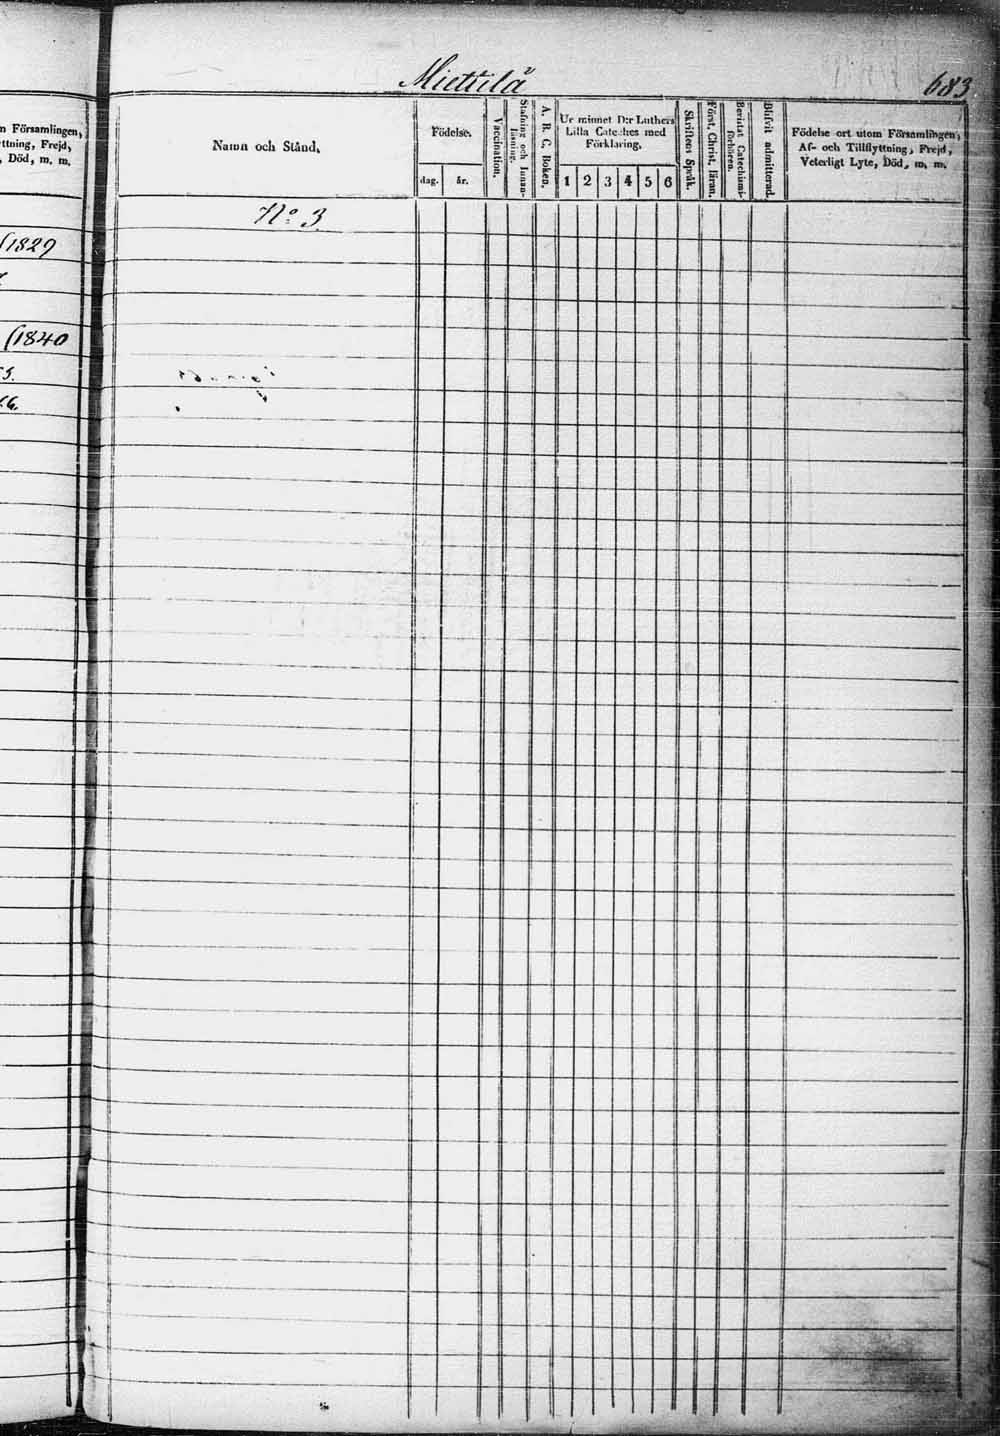 Miettilä
683
n Församlingen,
ttning, Frejd,
, Död, m. m.
(1829
(1840
Namn och Stånd,
Födelse.
dag. år.
Vaccination.
Stafning och Innan-
läsning.
A. B. C. Boken.
Ur minnet D:r Luthers
Lilla Cateches med
Förklaring,
1 2 3 4 5 6
Skriftens Språk.
Först. Christ. läran.
Bevistat Catechismi-
förhören.
Blifvit admitterad.
Födelse ort utom Församlingen,
Af- och Tillflyttning, Frejd,
Veterligt Lyte, Död, m. m.
No 3